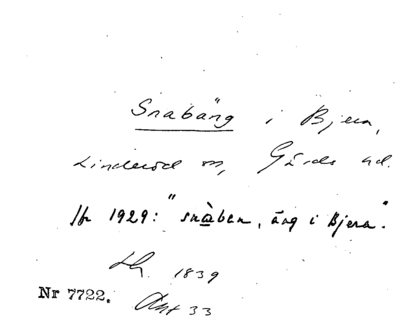 Snabäng i Bjera,
Linderöd sn, Gärds hd.
Jfr 1929: "snàben, äng i Bjera".
Lh 1839
Nr 7722. Ant 33